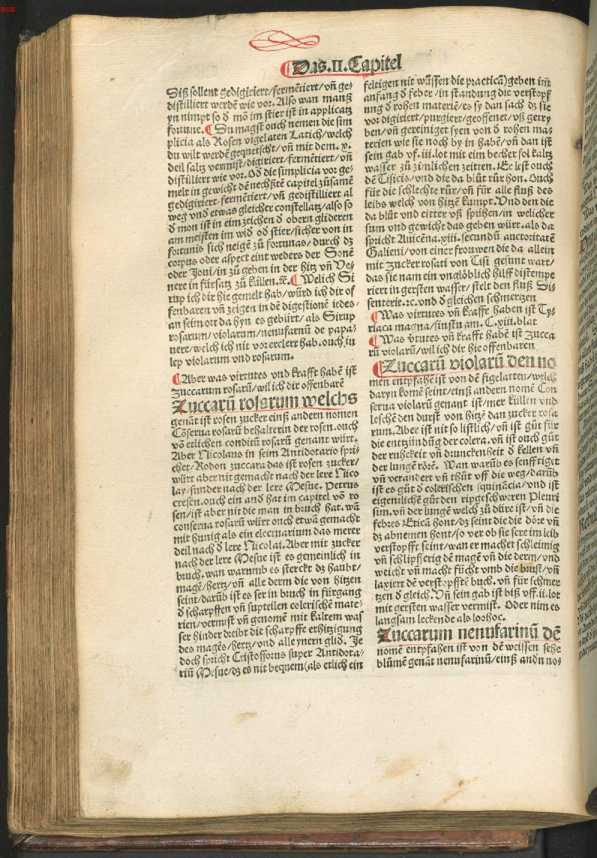 Das .II. Capitel
Diß sollent gedigiriert/fermētiert/vn̄ ge⸗
distilliert werdē wie vor. Also wan manß
yn nimpt so d̄ mō im stier ist in applicatz
fortune. Du magst ouch nemen die sim
plicia als Rosen vigelaten Latich/welch
du wilt werdē gequetscht/vn̄ mit dem .x.
deil saltz vermist/digiriert/fermētiert/vn̄
distilliert wie vor. Od̄ die simplicia vor ge⸗
melt in gewicht dē nechstē capitel zůsamē
gedigiriert/fermētiert/vn̄ gedistilliert al
weg vnd etwas gleicher constellatz/also so
d̄ mon ist in eim zeichen d̄ obern glideren
am meisten im wid̄ od̄ stier/sicher von in
fortunis sich neigē zů fortunas/durch dz
corpus oder aspect eint weders der Sonē
oder Joui/in zů geben in der hitz vn̄ Ve⸗
nere in fürsatz zů külen.ꝛc. Welich Si
rup ich dir hie gemelt hab/würd ich dir of
fenbaren vn̄ zeigen in dē digestionē iedes⸗
an seim ort da hyn es gebürt/als Sirup
rosarum/violarum/nenufarnū de papa⸗
uere/welch ich nit vor erclert hab.ouch iu
lep violarum vnd rosarum.
Aber was virtutes vnd krafft habē ist
zuccarum rosarū/wil ich dir offenbarē
Zuccarū rosarum welchs
genāt ist rosen zucker einß andern nomen
Cōserua rosarū behalterin der rosen.ouch
vō etlichen conditū rosarū genant würt.
Aber Nicolaus in seim Antidotario spri⸗
chet/Rodon zuccara das ist rosen zucker/
würt aber nit gemacht nach der lere Nico
lay/sunder nach der lere Mesue. Petrus
cresen.ouch ein and̄ hat im capitel vō ro
sen/ist aber nit die man in bruch hat. wā
conserua rosarū würt ouch etwā gemacht
mit hunig als ein electuarium das merer
deil nach d̄ lere Nicolai. Aber mit zucker
nach der lere Mesue ist es gemeinlich in
bruch. wan warumb es sterckt dz haubt/
magē/hertz/vn̄ alle derm die von hitzen
seint/darūb ist es ser in bruch in fürgang
d̄ scharpffen vn̄ supteilen colerischē mate⸗
rien/vermist vn̄ genomē mit kaltem was
ser hinder dreibt die scharpffe erhitzigung
des magēs/hertz/vnd alle ynern glid. Je
doch spricht Cristofforus super Antidota⸗
riū Mesue/dz es nit bequem/als etlich ein
feltigen nit wüssen die practicā)geben im
anfang d̄ feber/in standung die verstopf
fung d̄ rohen materiē/es sy dan sach dz sie
vor digiriert/purgiert/geoffenet/vß getry
ben/vn̄ gereiniget syen von d̄ rohen ma⸗
terien wie sie noch by in habē/vn̄ dan ist
sein gab vf.iii.lot mit eim becher fol kaltz
wasser zů zimlichen zeitten. Ee lest ouch
dē Tisicis/vnd die da blůt rür hon. Ouch
für die schlechte rür/vn̄ für alle fluß des
leibs welch von hitzē kumpt. Vnd den die
da blůt vnd eitter vß spühen/in welicher
sum vnd gewicht das geben würt. als da
spricht Auicēna.xiii.secundū auctoritatē
Galieni/von einer frouwen die da allein
mit zucker rosati von Tisi gesunt wart/
das sie nam ein vngloblich hilff distempe
riert in gersten wasser/stelt den fluß Dis⸗
senterie.ꝛc.vnd d̄ gleichen schmertzen
Was virtutes vn̄ krafft haben ist Ty⸗
riaca magna/finstu am. C.xiii.blat
Was v̄tutes vn̄ krafft habē ist zucca
rū violarū/wil ich dir hie offenbaren
Zuccarū violarū den no
men entpfahē ist von dē figelatten/welch
daryn komē seint/einß andern nomē Con
serua violarū genant ist/mer külen vnd
leschē den durst von hitzē dan zucker rosa
rum. Aber ist nit so lieblich/vn̄ ist gůt für
die entzündūg der colera. vn̄ ist ouch gůt
der ruhckeit vn̄ drunckenheit d̄ kellen vn̄
der lungē rörē. Wan warūb es senfftiget
vn̄ verandert vn̄ thůt vff die weg/darūb
ist es gůt d̄ colerischen squinācia/vnd ist
eigenlichē gůt den ripgeschweren Pleuri
sim. vn̄ der lungē welch zů dürr ist/vn̄ die
febres Eticā hont/dz seint die die dörr vn̄
dz abnemen hont/so ver ob sie sere im leib
verstopfft seint/wan er machet schleimig
vn̄ schlipfferig dē magē vn̄ die derm/vnd
weicht vn̄ macht fücht vmb die brust/vn̄
laxiert dē verstopfftē buch. vn̄ für schmer
tzen d̄ gleich. Vn̄ sein gab ist biß vff.ii.lot
mit gersten wasser vermist. Oder nim es
langsam leckende als loohoc.
Zuccarum nenufarinū dē
nomē entpfahen ist von dē weissen sehe
blümē genāt nenufarinū/einß andn̄ no⸗